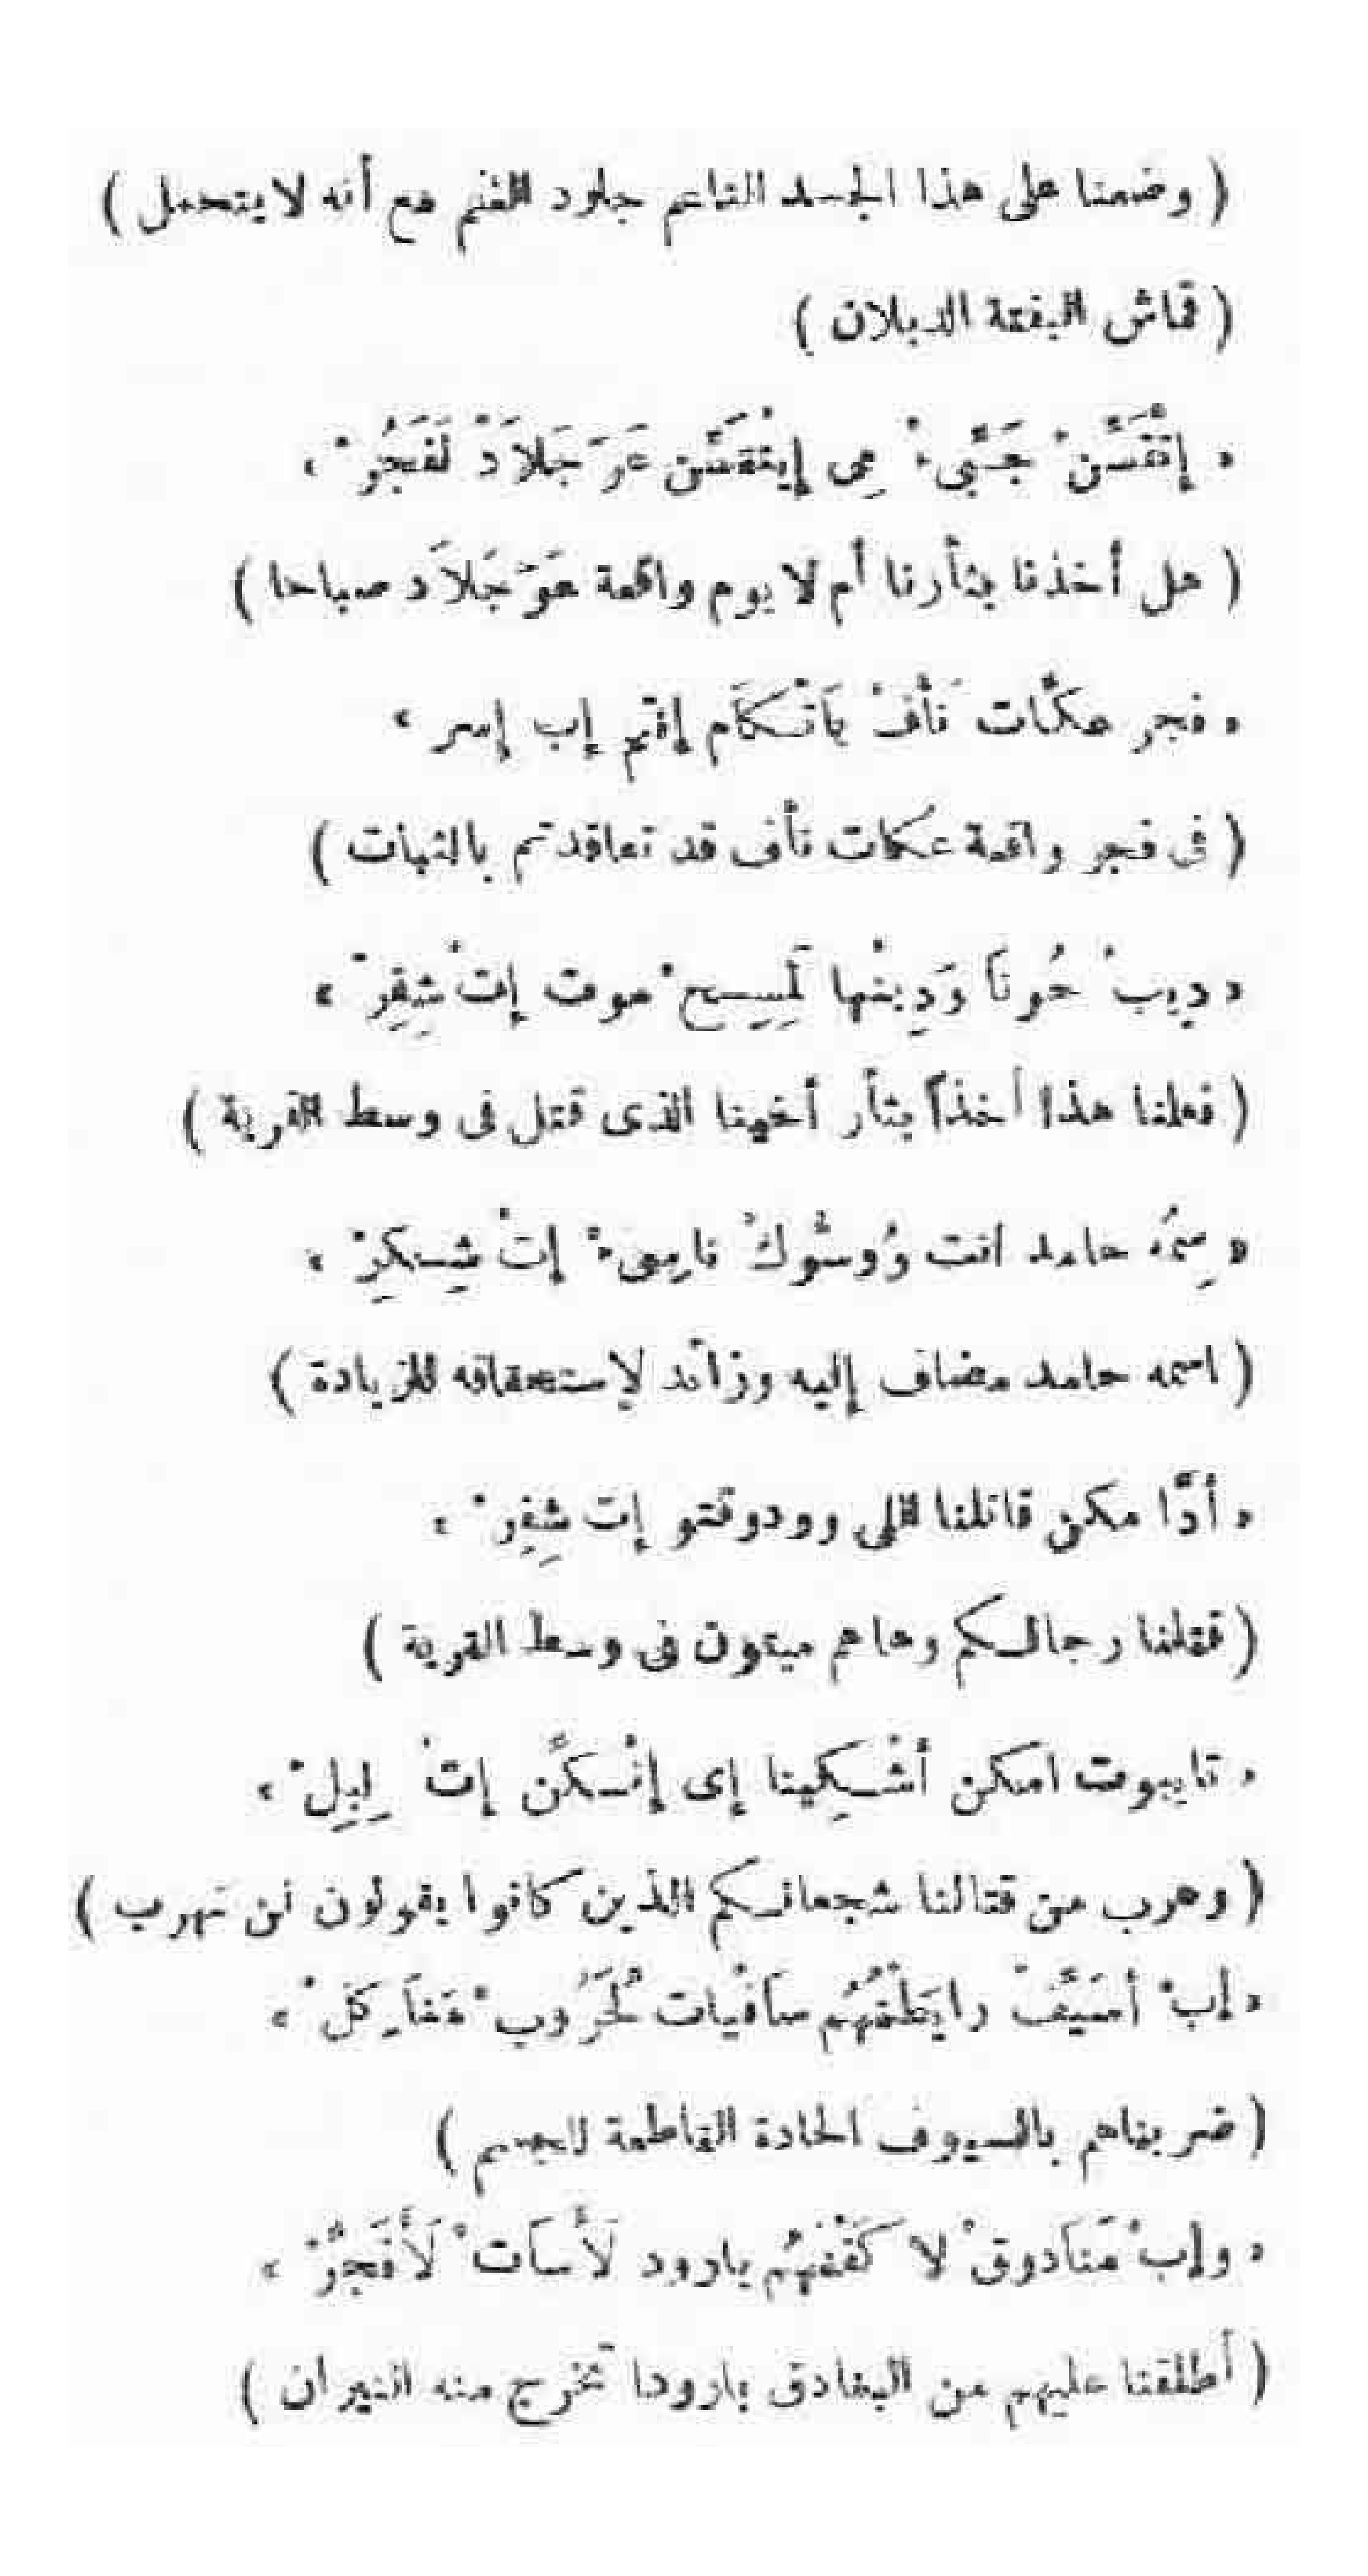 ( وضعنا على هذا الجسد الناعم جلود الغنم مع أنه لا يتحمل )
( قماش البفتة الدبلان )
« إتْقَسَّنْ جَبَّىءْ مِى إيتْقَسَّن عَرَ جَلاَدْ لَفَجُرْ »
( هل أخذنا بثأرنا أم لا يوم واقعة عَرَ جَلاَد صباحا )
« فجر عكّات نَأفْ إقتم إب إسر »
( فى فجر واقعة عكات نأف قد تعاقدتم بالثبات )
« دِيبْ حُونَا وَدِينْها لَمِسِيحْ موت إتْ شِفِرْ »
( فعلنا هذا أخذاً بثأر أخينا الذى قتل فى وسط القرية )
« سِمُّ حامد انت وُوسُّوكْ نارِمىءْ إتْ شِنكِرْ »
( اسمه حامد مضاف إليه وزائد لإستحقاقه للزيادة )
« أدَّا مكن قاتلنا للى وودوقتو إت شِفِرْ »
( قتلنا رجالكم وهاهم ميتون فى وسط القرية )
« تايبوت امكن أشْكِينا إى إنْسكَّن إتْ لِيلِ »
( وهرب من قتالنا شجعانكم الذين كانوا يقولون لن نهرب )
« إبْ أسَيَّفْ سَافْيات »
( ضربناهم بالسيوف الحادة القاطعة للجسم )
« وإبْ مَّنَادوقْ لا كَفْفهُم بارود لَأْسَاتْ لَأفَجُّرْ »
( أطلقنا عليهم من البنادق بارودا تخرج منه النيران )